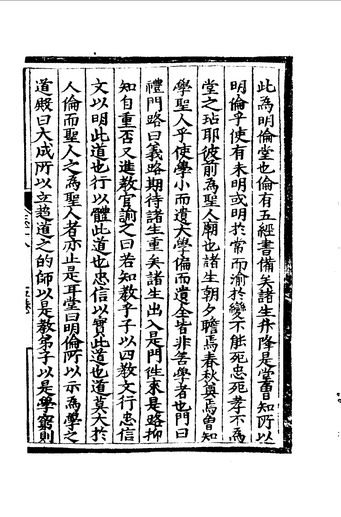 此為明倫堂也倫有五經書備矣諸生升降是堂曾知所以
明倫乎使有未明或明於常而渝於變不能死忠死孝不為
堂之玷耶彼前為聖人廟也諸生朝夕瞻焉春秋奠焉曽知
學聖人乎使學小而遺大學偏而遺全皆非善學者也門曰
禮門路曰義路期待諸生重矣諸生出入是門徃來是路抑
知自重否又進教官諭之曰若知教乎子以四教文行忠信
文以明此道也行以體此道也忠信以實此道也道莫大於
人倫而聖人之為聖人者亦止是耳堂曰明倫所以示為學之
道殿曰大成所以立趨道之的師以是教弟子以是學窮則